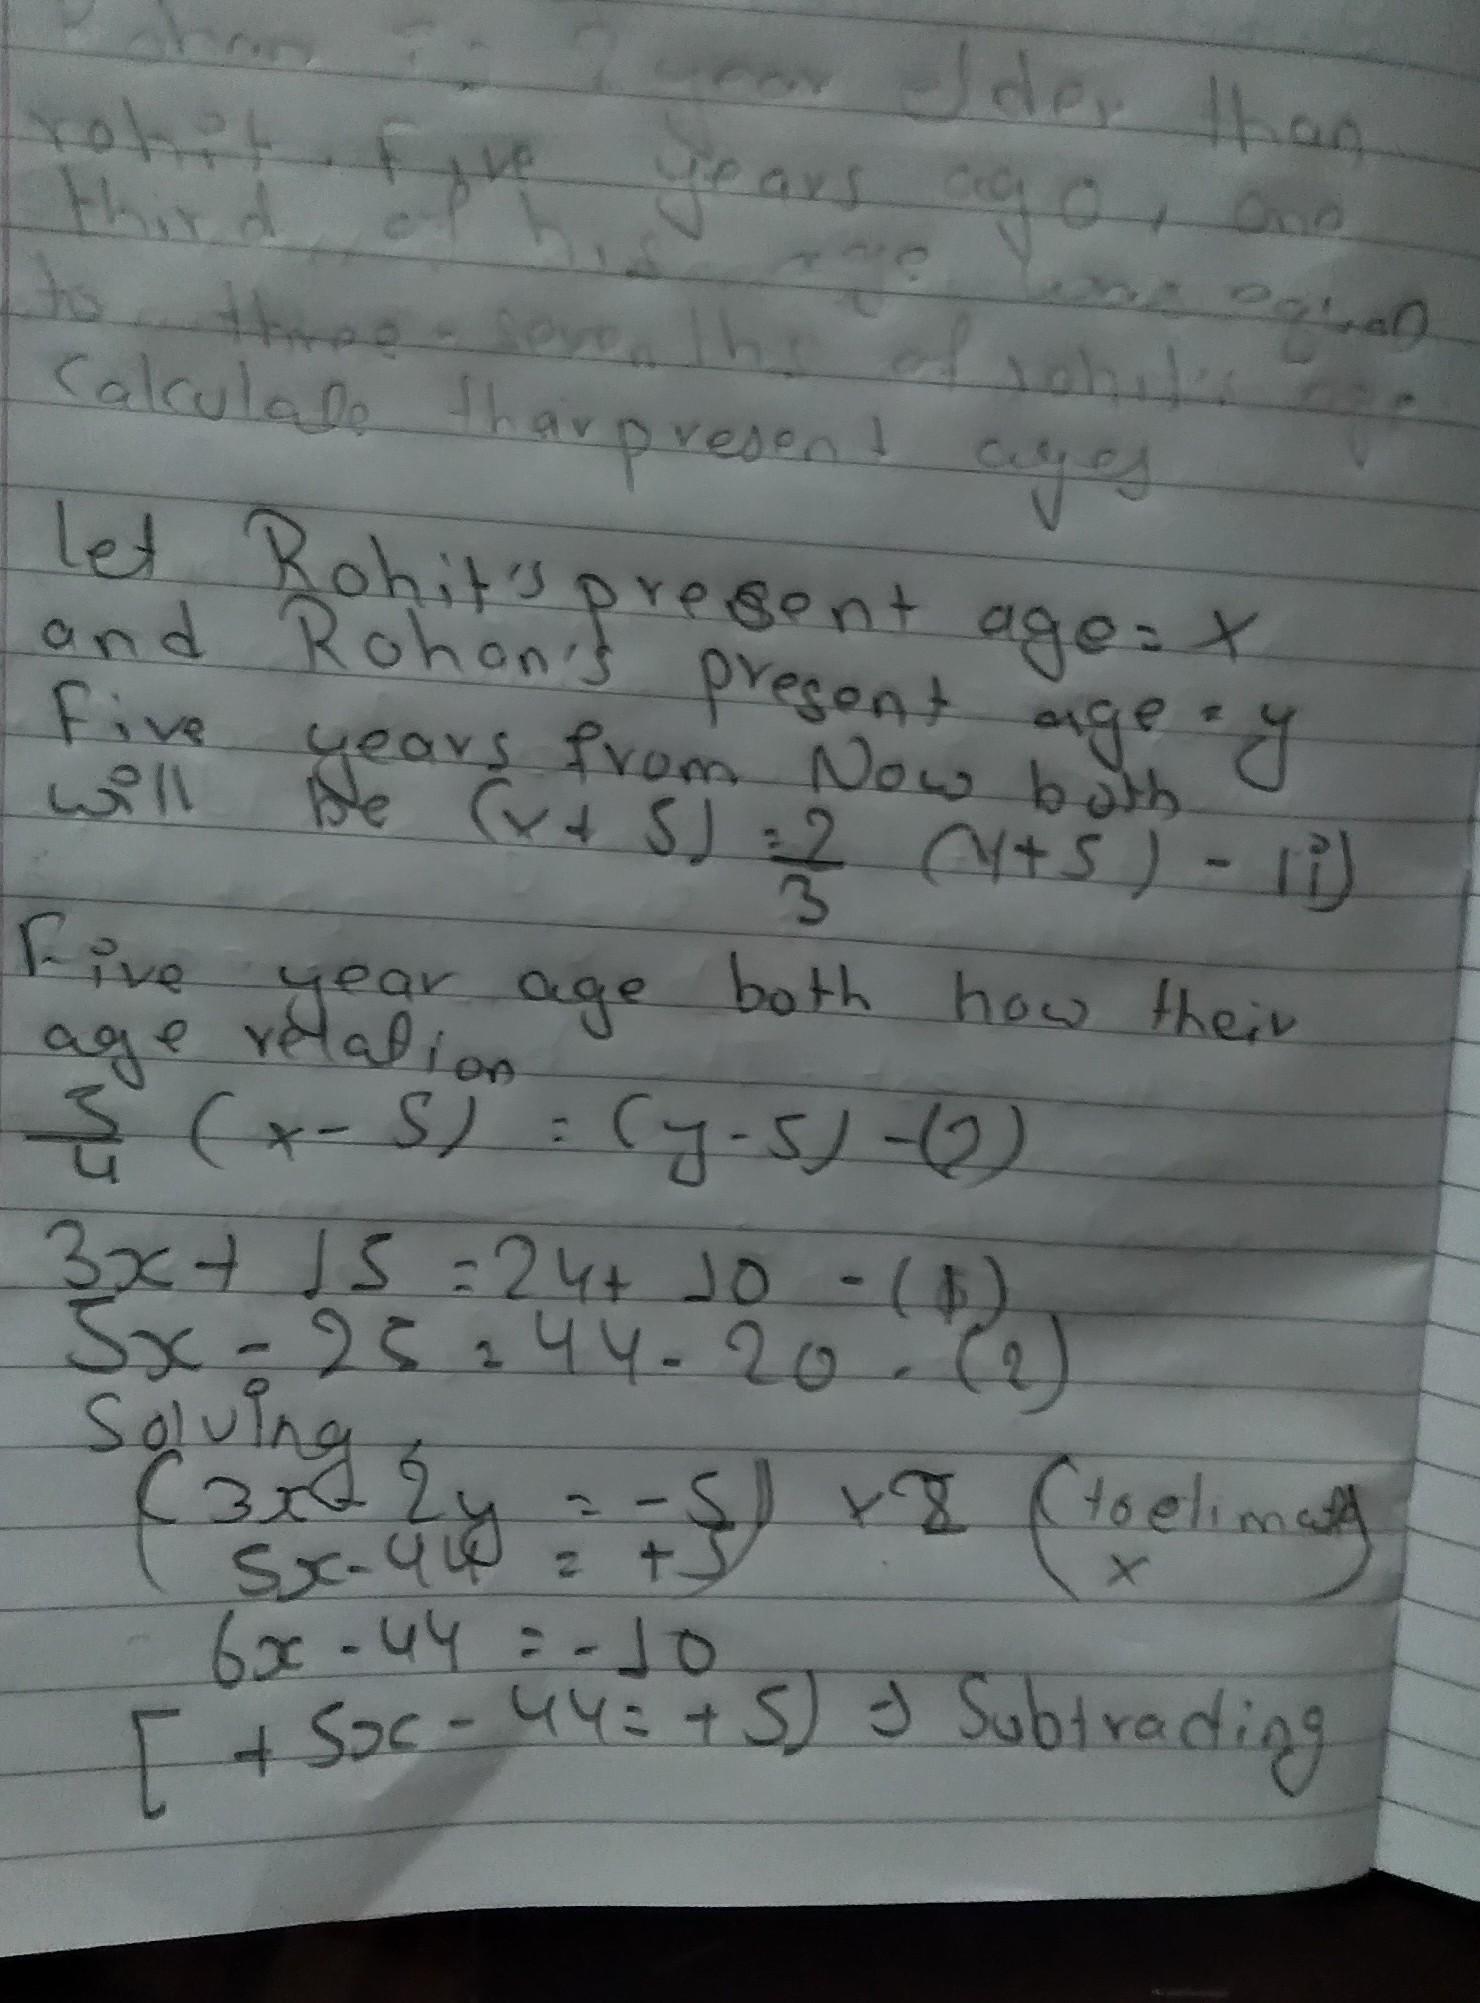 Rohan is 2 year elder than
rohit. Five years ago, one
third of his age was equal
to three-sevenths of rohit's age
Calculate thair present ages
let Rohit's present age = x
and Rohan's present age = y
Five years from Now both
will be (x + 5) = 2/3 (y+5) - (i)
Five year age both how their
age relation
5/4 (x - 5) = (y - 5) - (2)
3x + 15 = 2y + 10 - (1)
5x - 25 = 4y - 20 - (2)
Solving
(3x - 2y = -5) x 2 (to elimate
5x - 4y = +5 x)
6x - 4y = -10
[ + 5x - 4y = + 5) ⇒ Subtrading